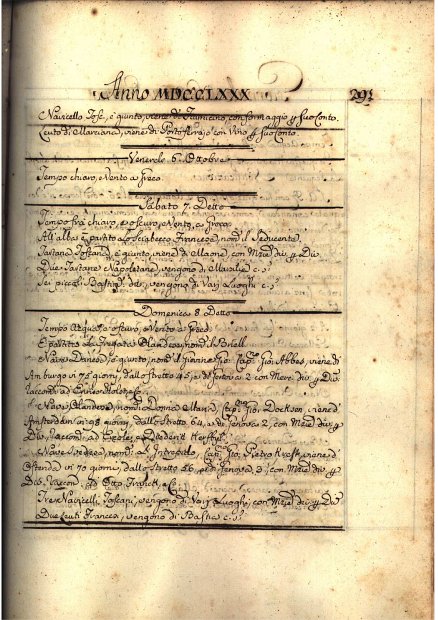 Anno MDCCLXXX 291
Navicello Tosc., è giunto, viene di Fiumicino con formaggio p suo Conto.
Leuto di Marciana, viene di Porto ferrajo con Vino p suo Conto.
Venerdì 6. Ottobre
Tempo chiaro, Vento a Greco.
Sabato 7. Detto
Tempo frà chiaro, e oscuro, Vento a Greco.
All'alba è partito lo Sciabecco Francese, nom. il Seducente.
Tartana Toscana, è giunta, viene di con Merc. div. p Div.
Due Tartane Napoletane, vengono di c. s.
Sei piccoli Bastim. vengono di Varj Luoghi c. s.
Domenica 8. Detto
Tempo e oscuro, e Vento a Greco.
È partita la Fregata Olandese, nom.
Nave Danese, è giunta, nom. Cap. Abbes, viene di
Amburgo in 75 giorni, dallo Stretto 45, e di Genova 2 con Merc. div. p Div.
Raccom. ad
Nave Olandese, nom. Donna Maria, Cap. Docksen, viene d'
Amsterdam in 98 giorni, dallo Stretto 64, e di Genova 2, con Merc. div. p
Div. Raccom. ad
Nave Svedese, nom. La Cap. Pietro viene d'
Ostenda in 70 giorni, dallo Stretto 56, e di Genova 3, con Merc. div. p
Div. Raccom. ad Otto Franck, e C.
Tre Navicelli Toscani, vengono di Varj Luoghi, con Merc. div. p Div.
Due Leuti Francesi, vengono di Bastia c. s.